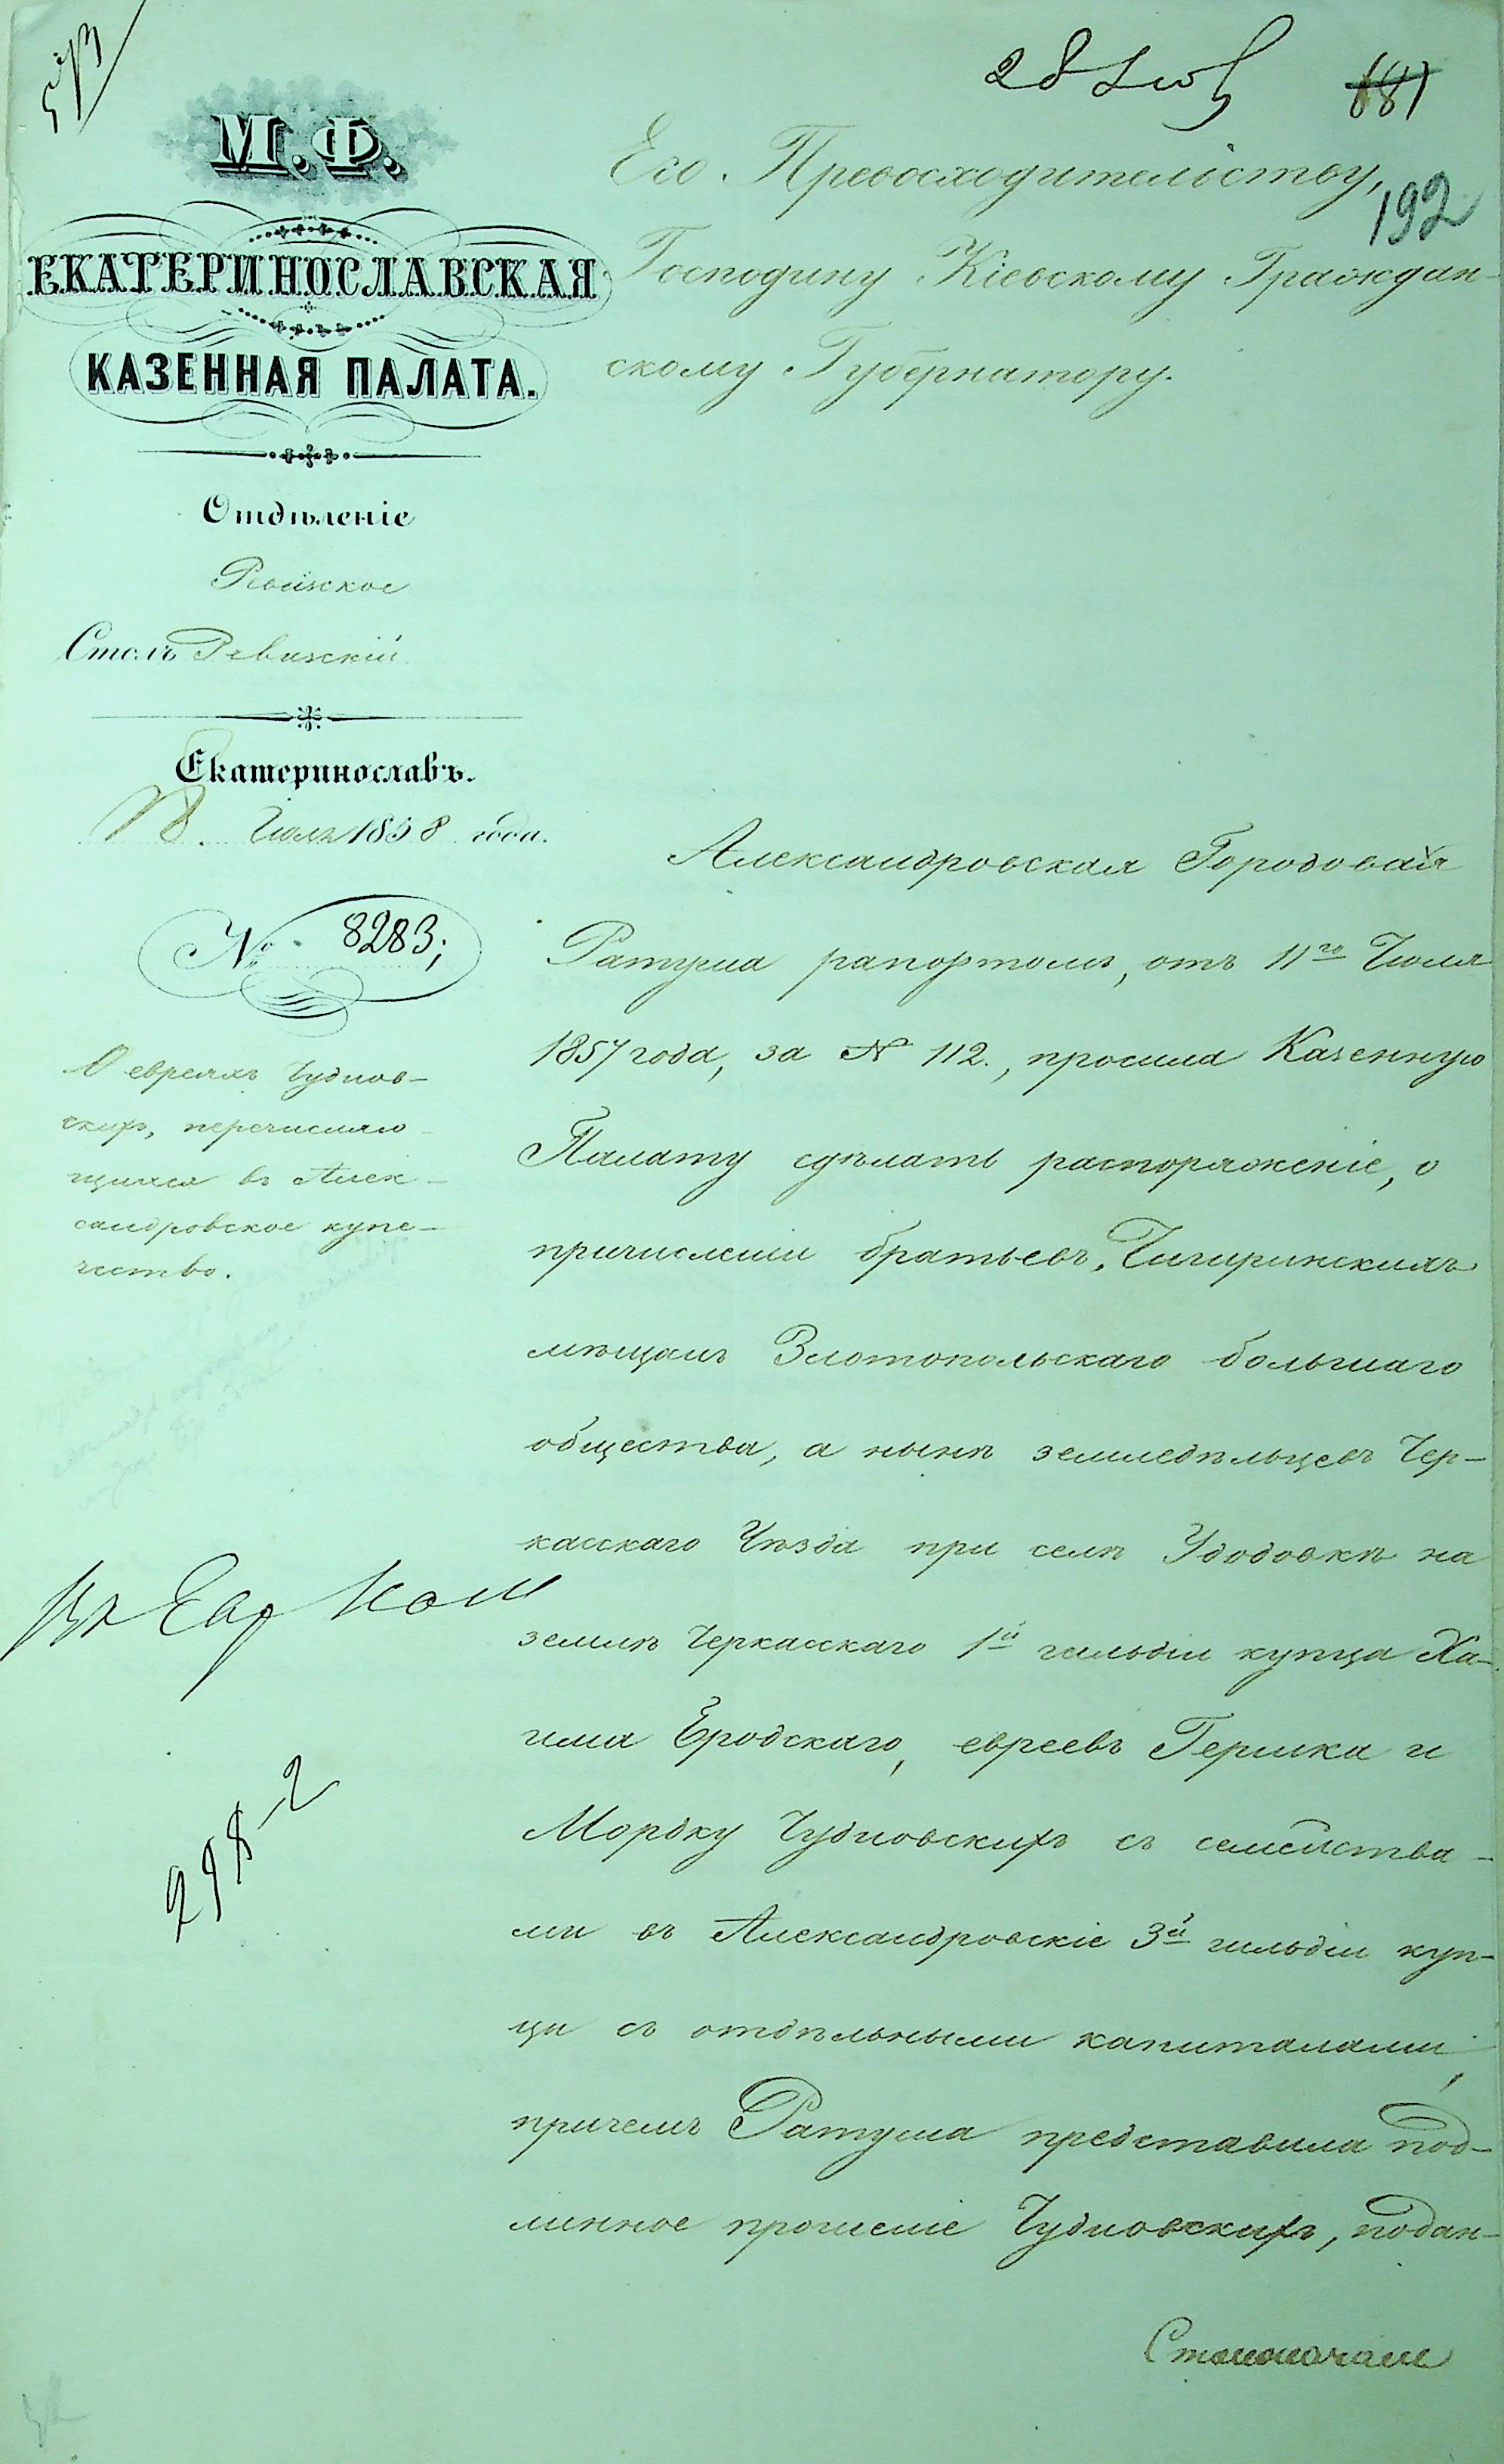 28 Июл
681
192
М.Ф.
ЕКАТЕРИНОСЛАВСКАЯ
КАЗЕННАЯ ПАЛАТА.
Отдѣленіе
Столъ Ревизскій
Екатеринославъ.
18 Іюля 1858 года.
№ 8283;
О евреяхъ Чуднов-
скихъ, перечисляю-
щихся въ Алек-
сандровское купе-
чество.
298-2
Его Превосходительству,
Господину Кіевскому Граждан-
скому Губернатору.
Александровская Городовая
Ратуша рапортомъ, отъ 11го Іюля
1857 года, за № 112., просила Казенную
Палату сдѣлать распоряженіе, о
причисленіи братьевъ, Чигиринскихъ
мѣщанъ Златопольскаго большаго
общества, а нынѣ земледѣльцевъ Чер-
касскаго Уѣзда при селѣ Удодовкѣ на
землѣ Черкасскаго 1й гильдіи купца Ха-
има Бродскаго, евреевъ Гершка и
Мордку Чудновскихъ съ семейства-
ми въ Александровскіе 3й гильдіи куп-
цы съ отдѣльными капиталами,
причемъ Ратуша представила под-
линное прошеніе Чудновскихъ, подан-